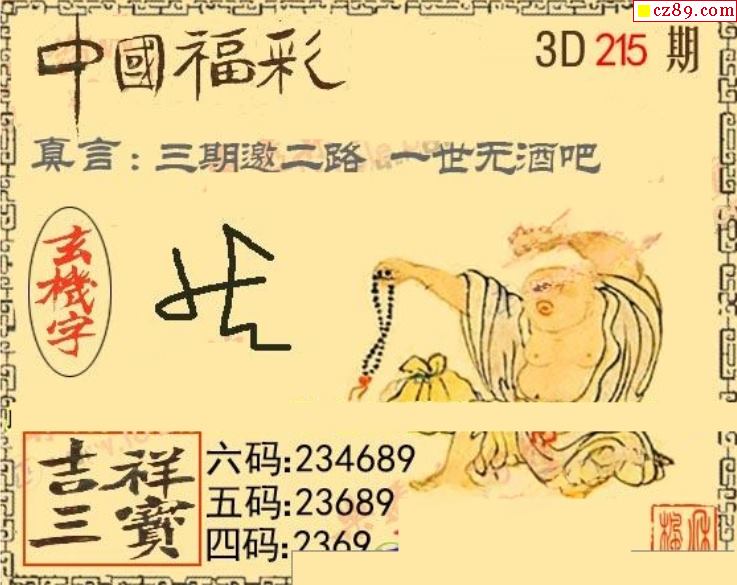 cz89.com
中國福彩 3D 215 期
真言：三期邀二路 一世无酒吧
玄機字
吉祥三寶
六码:234689
五码:23689
四码:2369